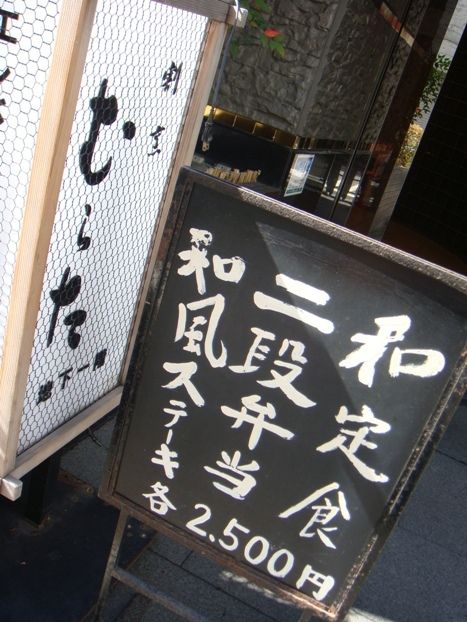 和定食
二段弁当
和風ステーキ
各2,500円
割烹
むらた
地下一階